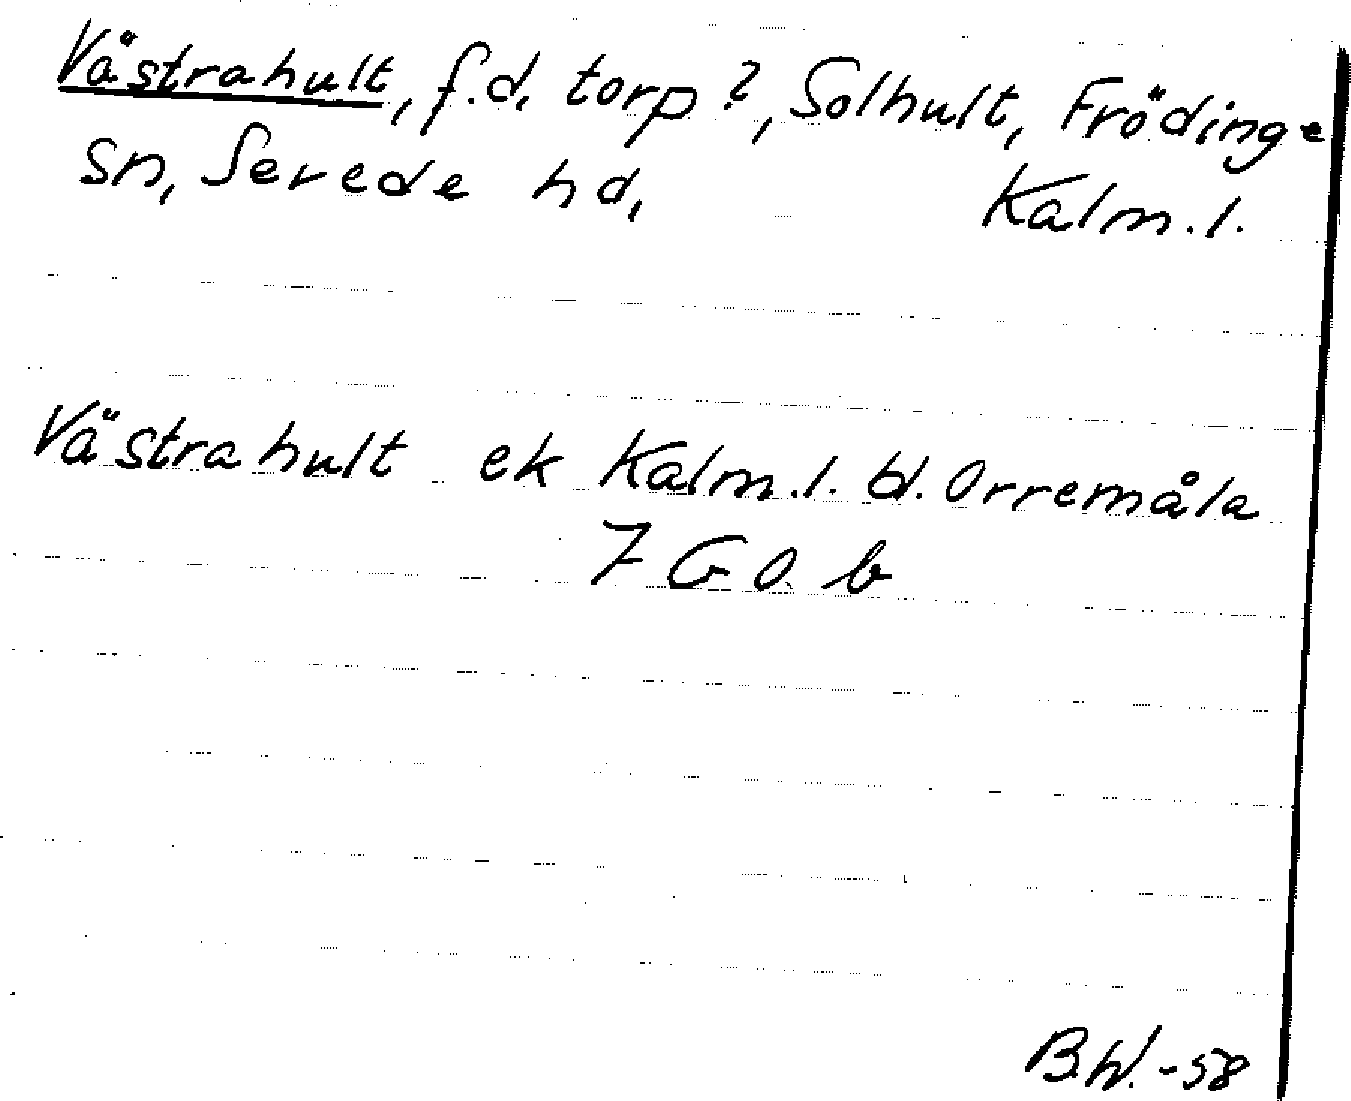 Västrahult, f.d. torp?, Solhult, Frödinge
sn, Sevede hd, Kalm.l.
Västrahult ek Kalm.l. bl. Orremåla
7 G O. b
B.W. -58